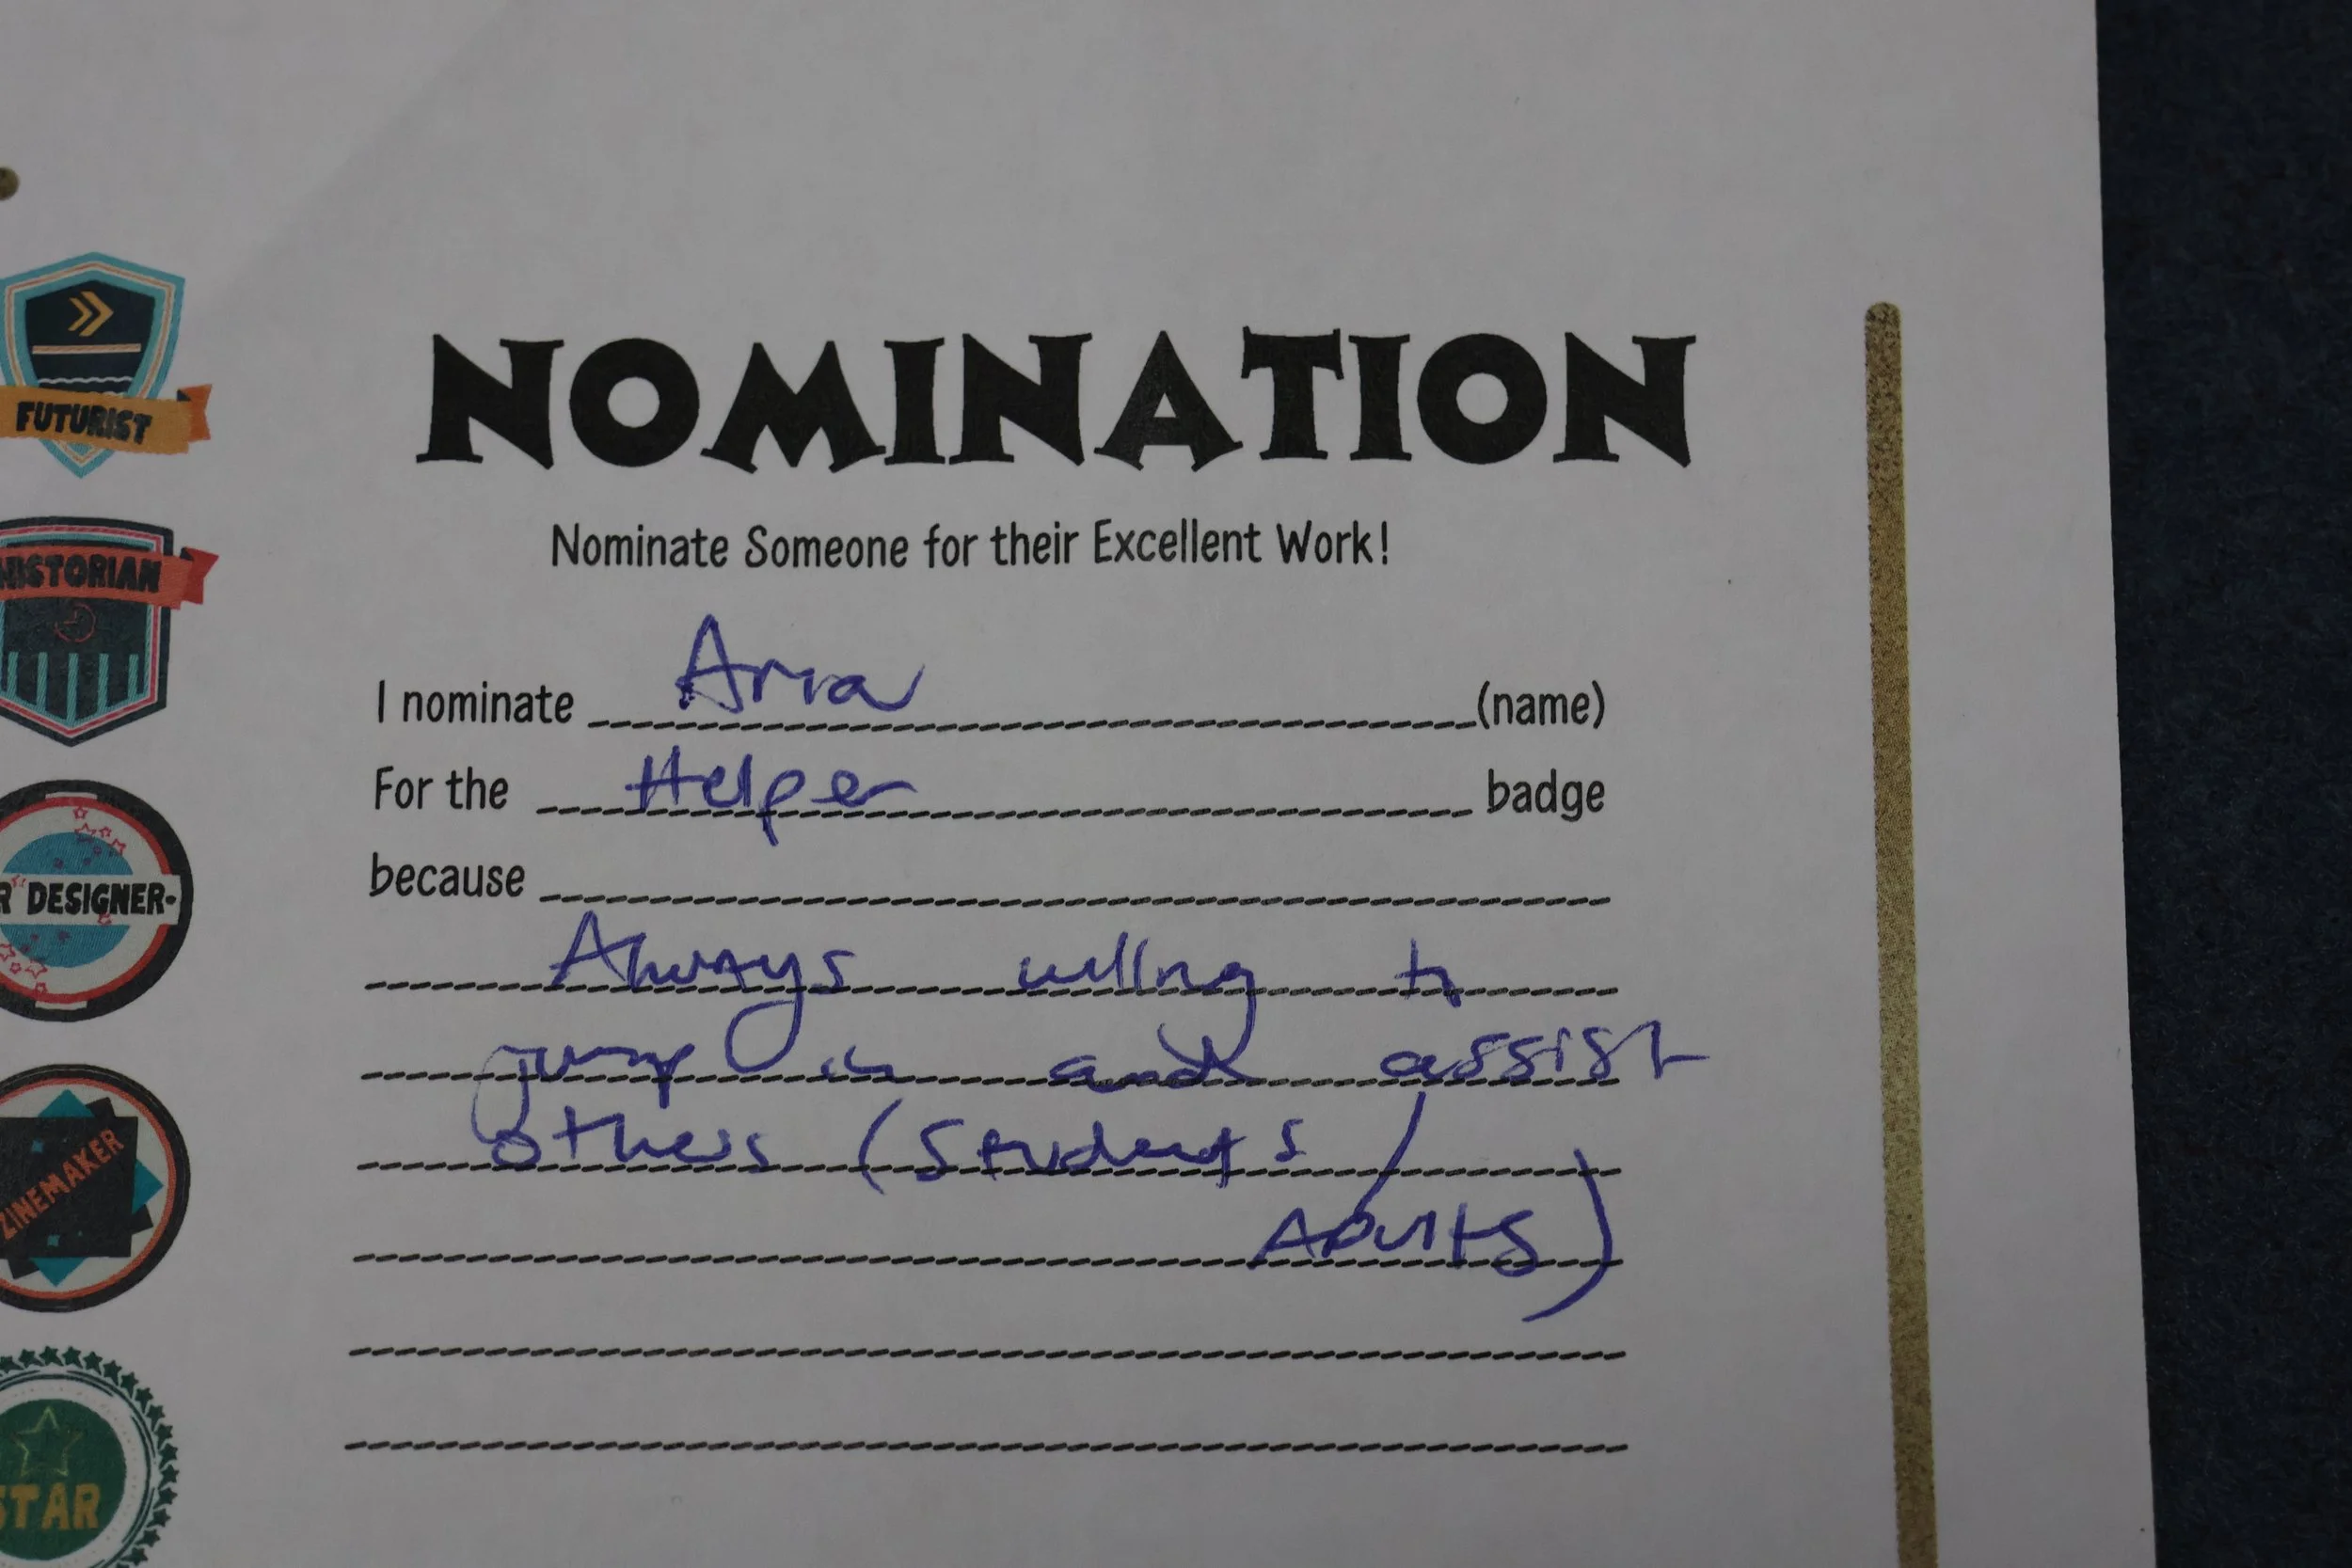 FUTURIST
HISTORIAN
R DESIGNER
ZINEMAKER
STAR
NOMINATION
Nominate Someone for their Excellent Work!
I nominate Aria (name)
For the Helper badge
because
Always willing to
jump in and assist
others (students /
Adults)